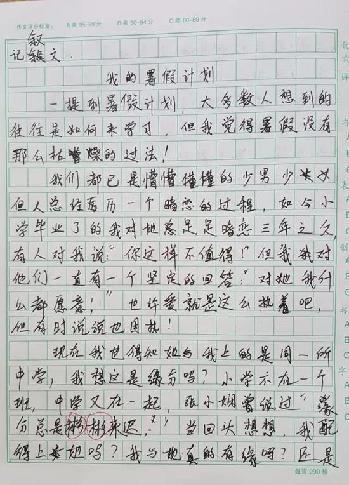 叙
记叙文.
我的暑假计划
一提到暑假计划 大多数人想到的
往往是如何来学习，但我觉得暑假没有
那么枯燥的过法！
我们都已是懵懵懂懂的少男少女
但人总经历一个暗恋的过程，如今小
学毕业了的我对她足足暗恋三年之久
有人对我说："你这样不值得！"但我对
他们一直有一个坚定的回答："对她我什
么都愿意！"也许爱就是这么执着吧，
但有时说说也困执！
现在我也得知她与我上的是同一所
中学，我想这是缘分吗？小学不在一个
班，中学又在一起，张小娴曾经过"缘
分总是渐渐来迟。"当回头想想，我配
得上她吗？我与她真的有缘吗？还是